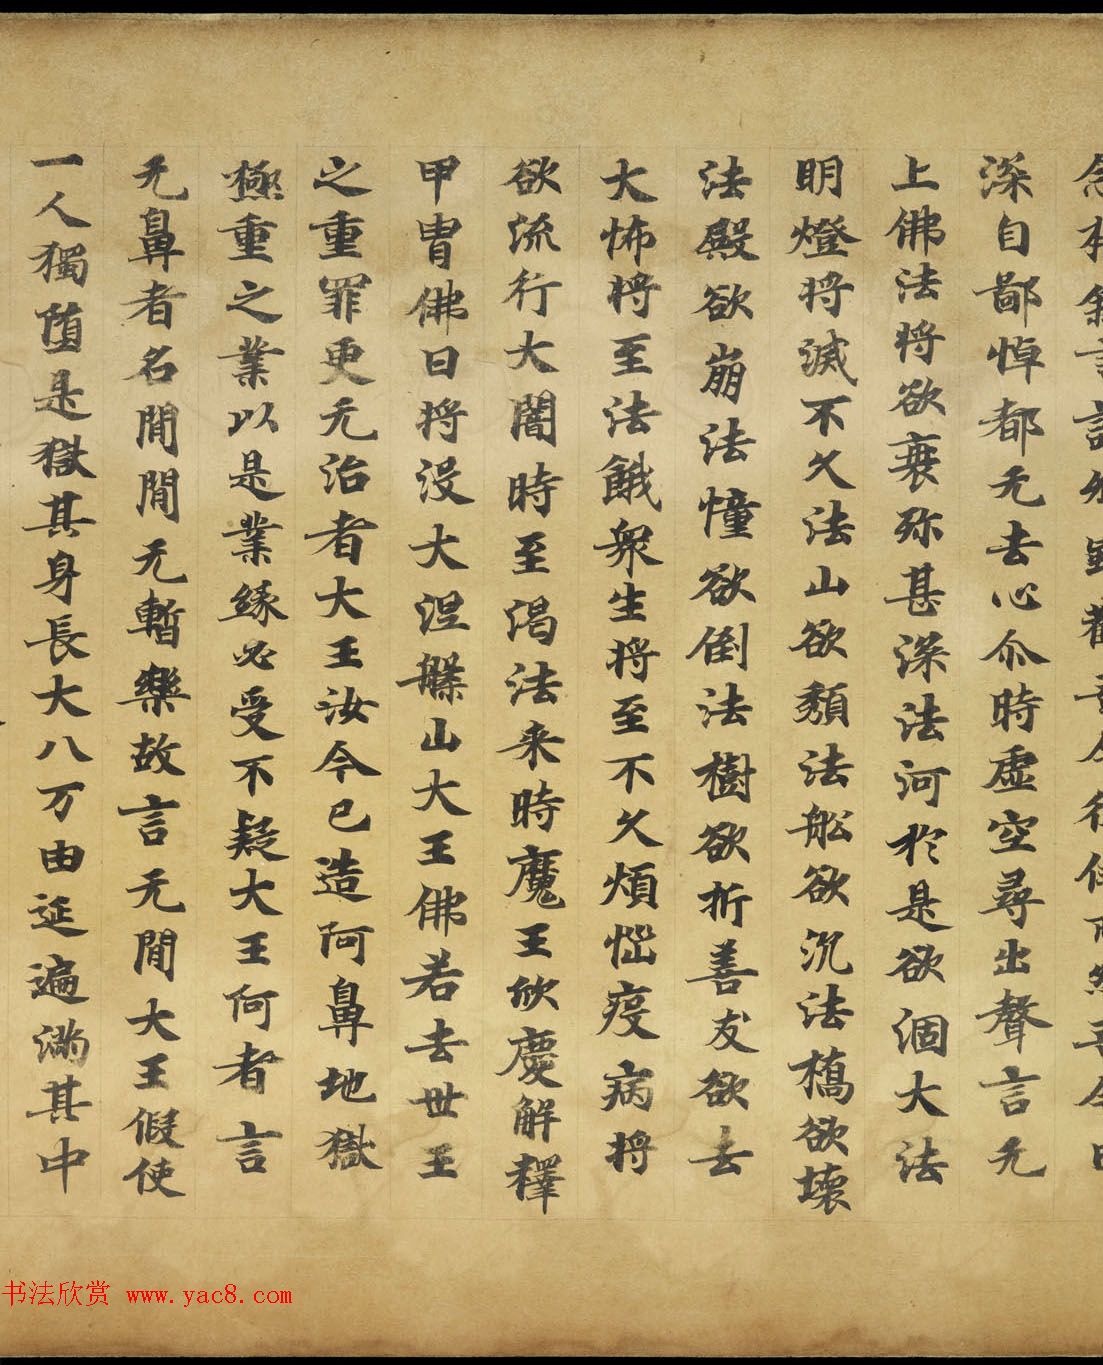 深自鄙悼都无去心尒時虛空尋出聲言无
上佛法將欲衰殄甚深法河於是欲涸大法
明燈將滅不久法山欲頹法舩欲沉法橋欲壞
法殿欲崩法幢欲倒法樹欲折善友欲去
大怖將至法餓衆生將至不久煩惱疫病將
欲流行大闇時至渴法来時魔王欣慶解釋
甲冑佛日將沒大涅槃山大王佛若去世王
之重罪更无治者大王汝今已造阿鼻地獄
極重之業以是業緣必受不疑大王何者言
无鼻者名間間无暫樂故言无間大王假使
一人獨墮是獄其身長大八万由延遍滿其中
书法欣赏 www.yac8.com